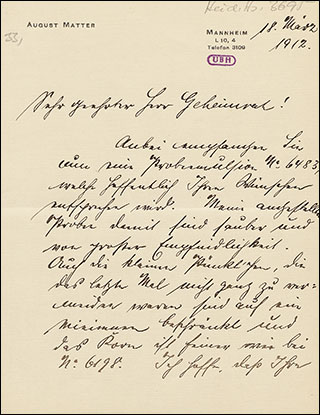 Heid. Hs. 6698
33,
AUGUST MATTER
MANNHEIM
L 10, 4
Telefon 3109
UBH
18. März
1912.
Sehr geehrter Herr Geheimrat!
Anbei empfangen Sie
nun eine Probeemulsion No 6483,
welche hoffentlich Ihren Wünschen
entsprechen wird. Meine angestellten
Proben damit sind sauber und
von großer Empfindlichkeit.
Auch die kleinen Pünktchen, die
das letzte Mal nicht ganz zu ver-
meiden waren sind auf ein
Minimum beschränkt und
das Korn ist feiner wie bei
No. 6198. Ich hoffe, daß Ihre